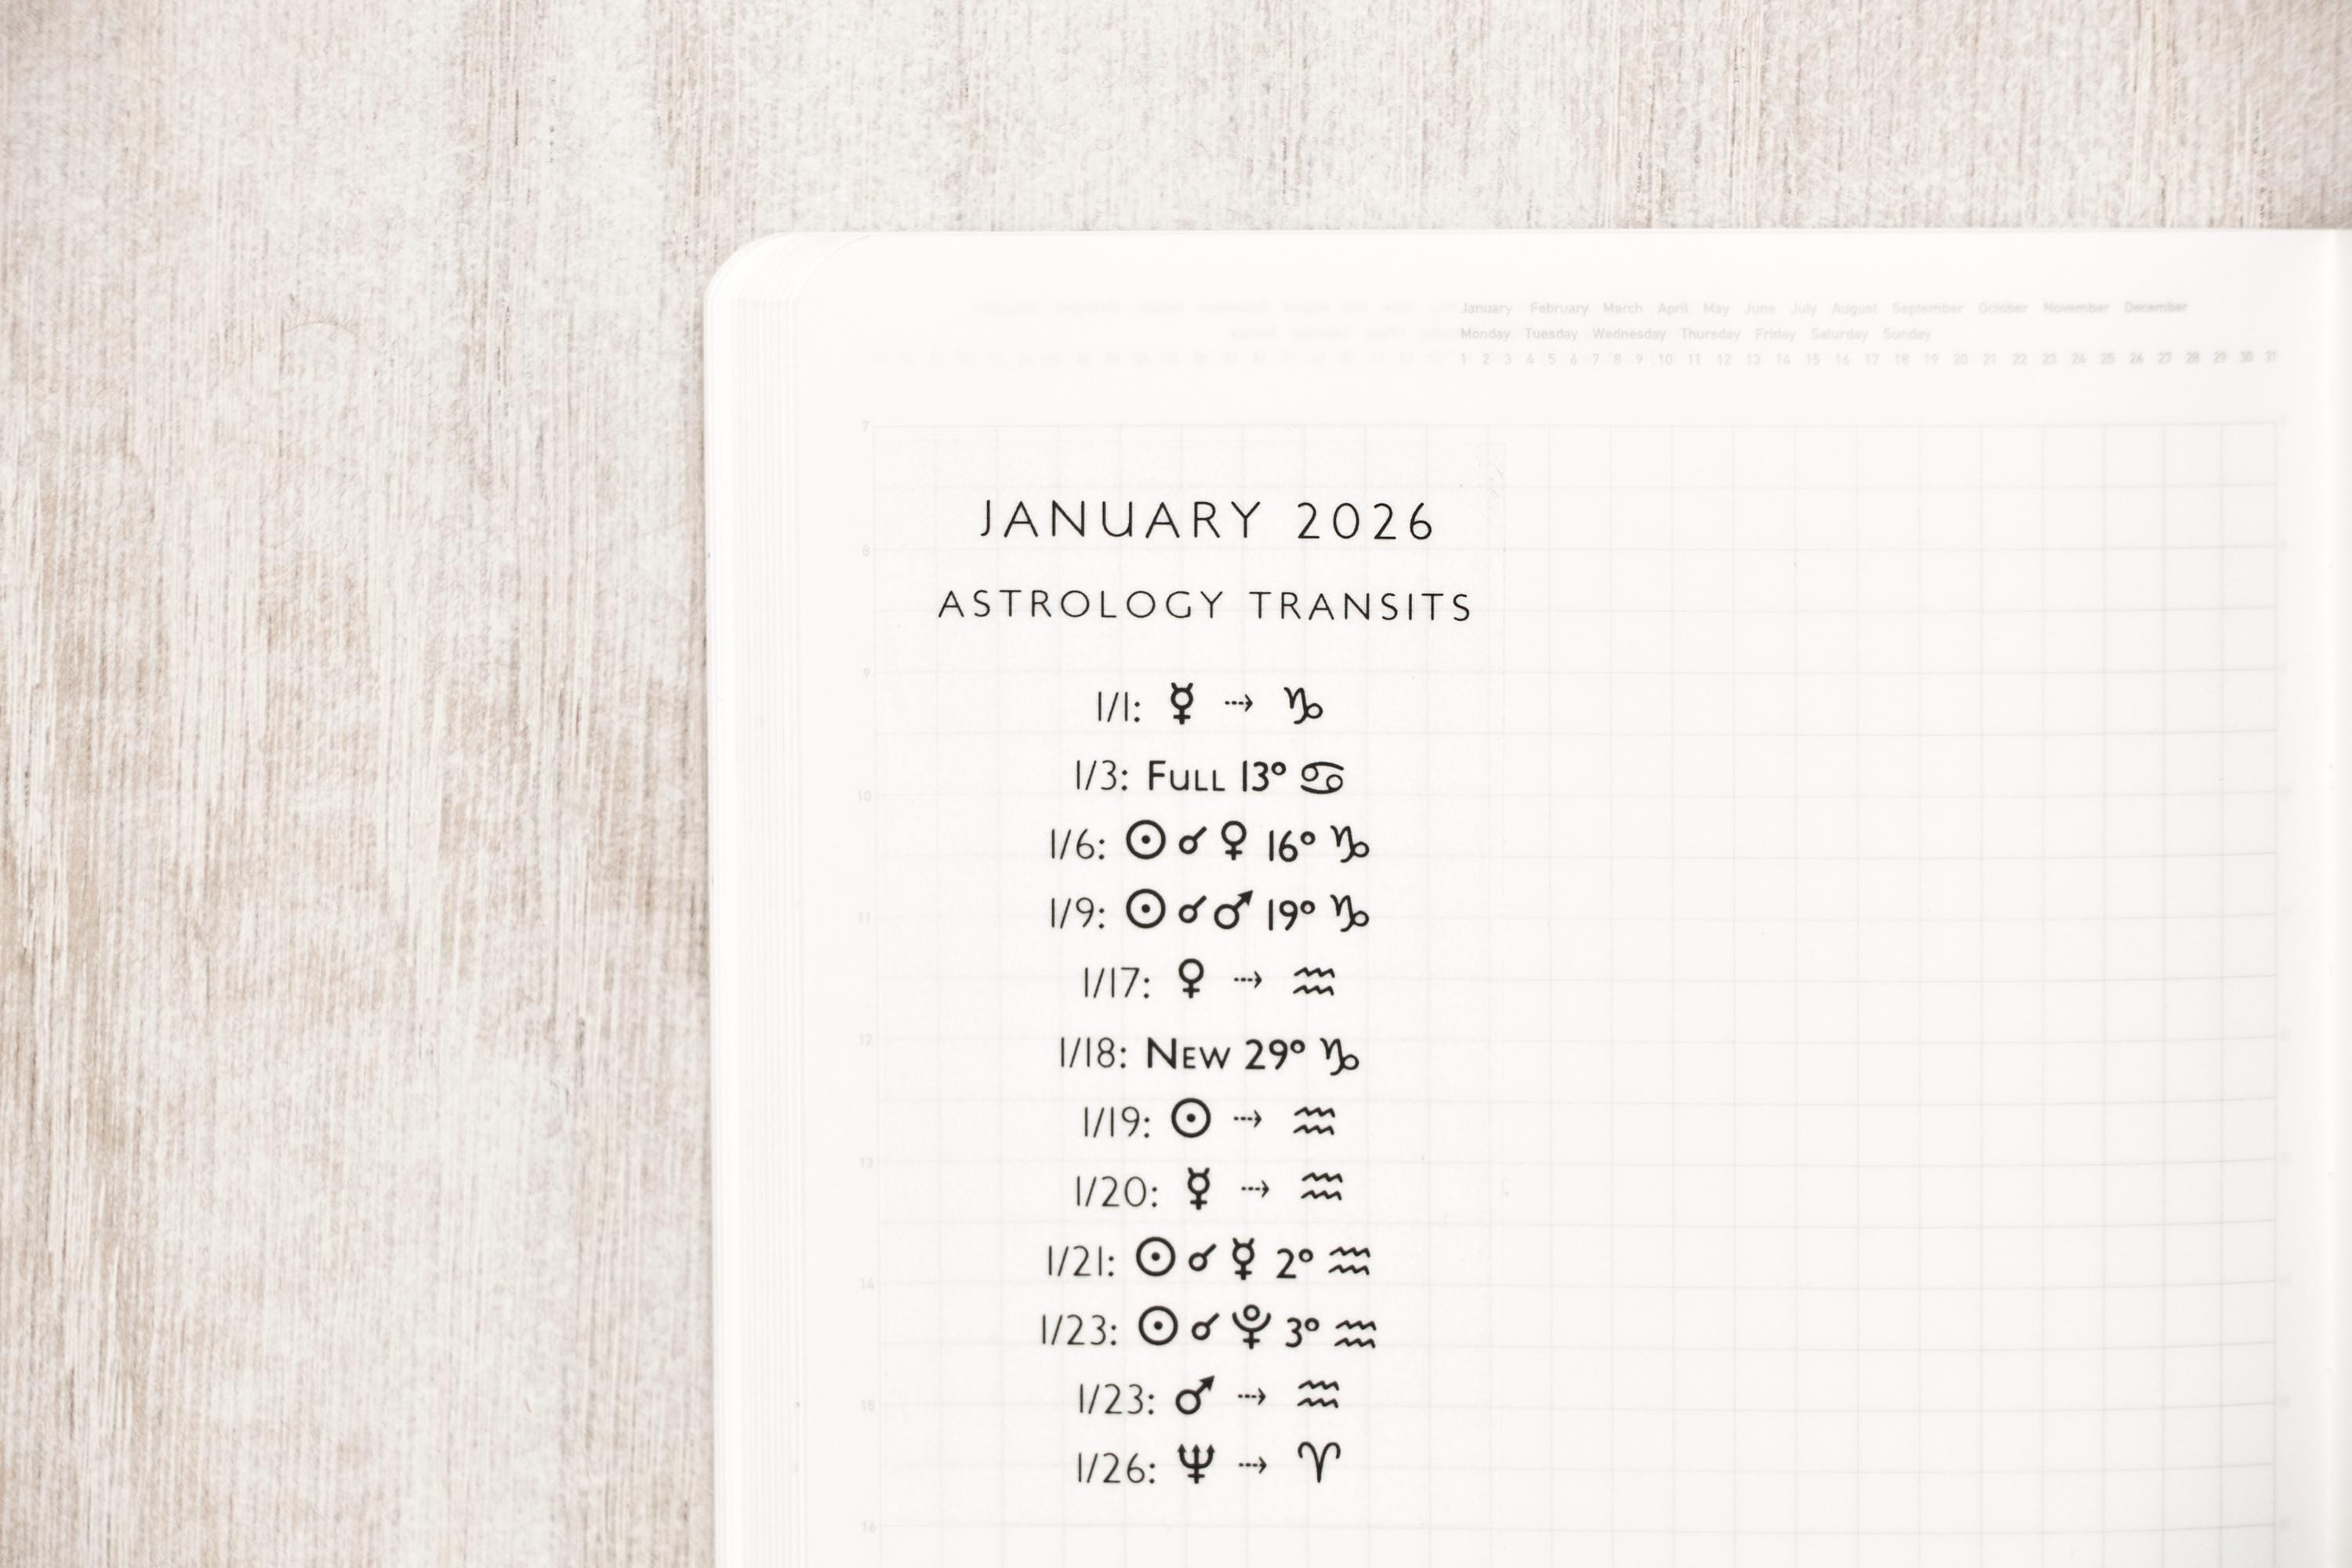 January February March April May June July August September October November December
Monday Tuesday Wednesday Thursday Friday Saturday Sunday
1 2 3 4 5 6 7 8 9 10 11 12 13 14 15 16 17 18 19 20 21 22 23 24 25 26 27 28 29 30 31
7
JANUARY 2026
8
ASTROLOGY TRANSITS
9
1/1: ☿ ⇢ ♑
1/3: FULL 13° ♋
10
1/6: ☉ ☌ ♀ 16° ♑
1/9: ☉ ☌ ♂ 19° ♑
11
1/17: ♀ ⇢ ♒
12
1/18: NEW 29° ♑
1/19: ☉ ⇢ ♒
13
1/20: ☿ ⇢ ♒
1/21: ☉ ☌ ☿ 2° ♒
14
1/23: ☉ ☌ ♇ 3° ♒
1/23: ♂ ⇢ ♒
15
1/26: ♆ ⇢ ♈
16